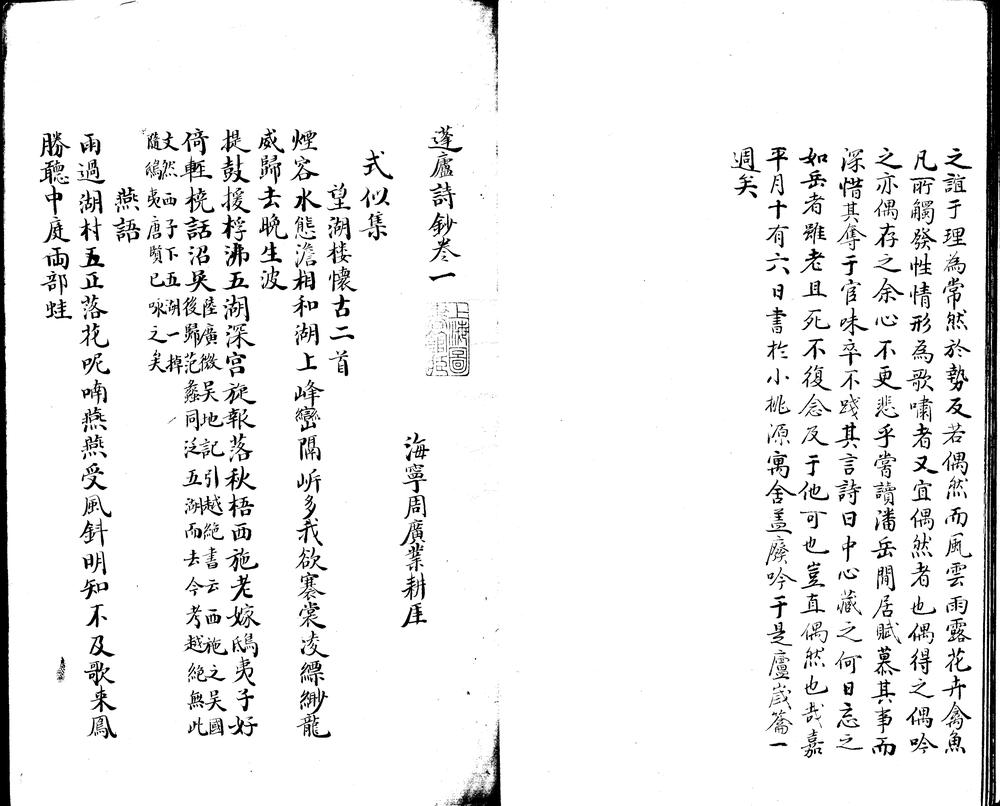 之誼于理為常然於勢反若偶然而風雲雨露花卉禽魚
凡所觸發性情形為歌嘯者又宜偶然者也偶得之偶吟
之亦偶存之余心不更悲乎嘗讀潘岳閒居賦慕其事而
深惜其奪于官味卒不踐其言詩曰中心藏之何日忘之
如岳者雖老且死不復念及于他可也豈直偶然也哉嘉
平月十有六日書於小桃源寓舍盖廢吟于是廬歲籥一
週矣
蓬廬詩鈔卷一
上海圖書館藏
海寧周廣業耕厓
式似集
望湖樓懷古二首
煙容水態澹相和湖上峰巒隔岍多我欲褰裳凌縹緲龍
威歸去晚生波
提鼓援桴沸五湖深宮旋報落秋梧西施老嫁鴟夷子好
倚輕橈話沼吳陸廣微吳地記引越絕書云西施之吳國
後歸范蠡同泛五湖而去今考越絕無此
文然西子下五湖一掉
隨鴟夷唐賢已咏之矣
燕語
雨過湖村五正落花呢喃燕燕受風斜明知不及歌来鳳
勝聽中庭兩部蛙